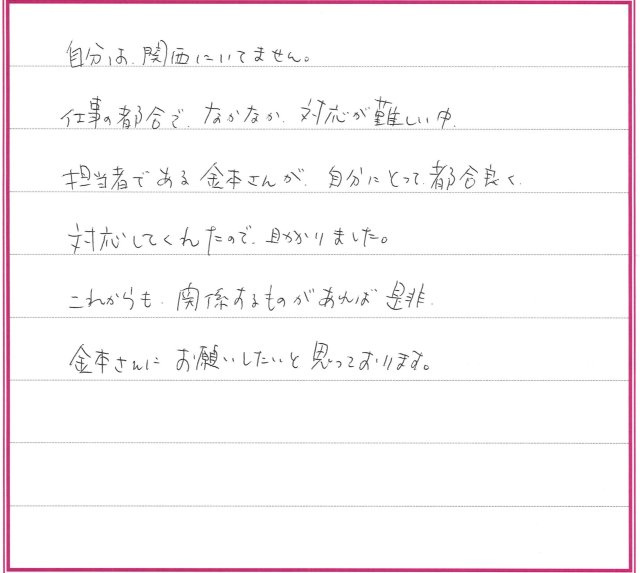 自分は、関西にいてません。
仕事の都合で、なかなか、対応が難しい中、
担当者である金本さんが、自分にとって都合良く、
対応してくれたので、助かりました。
これからも、関係するものがあれば是非、
金本さんにお願いしたいと思っております。